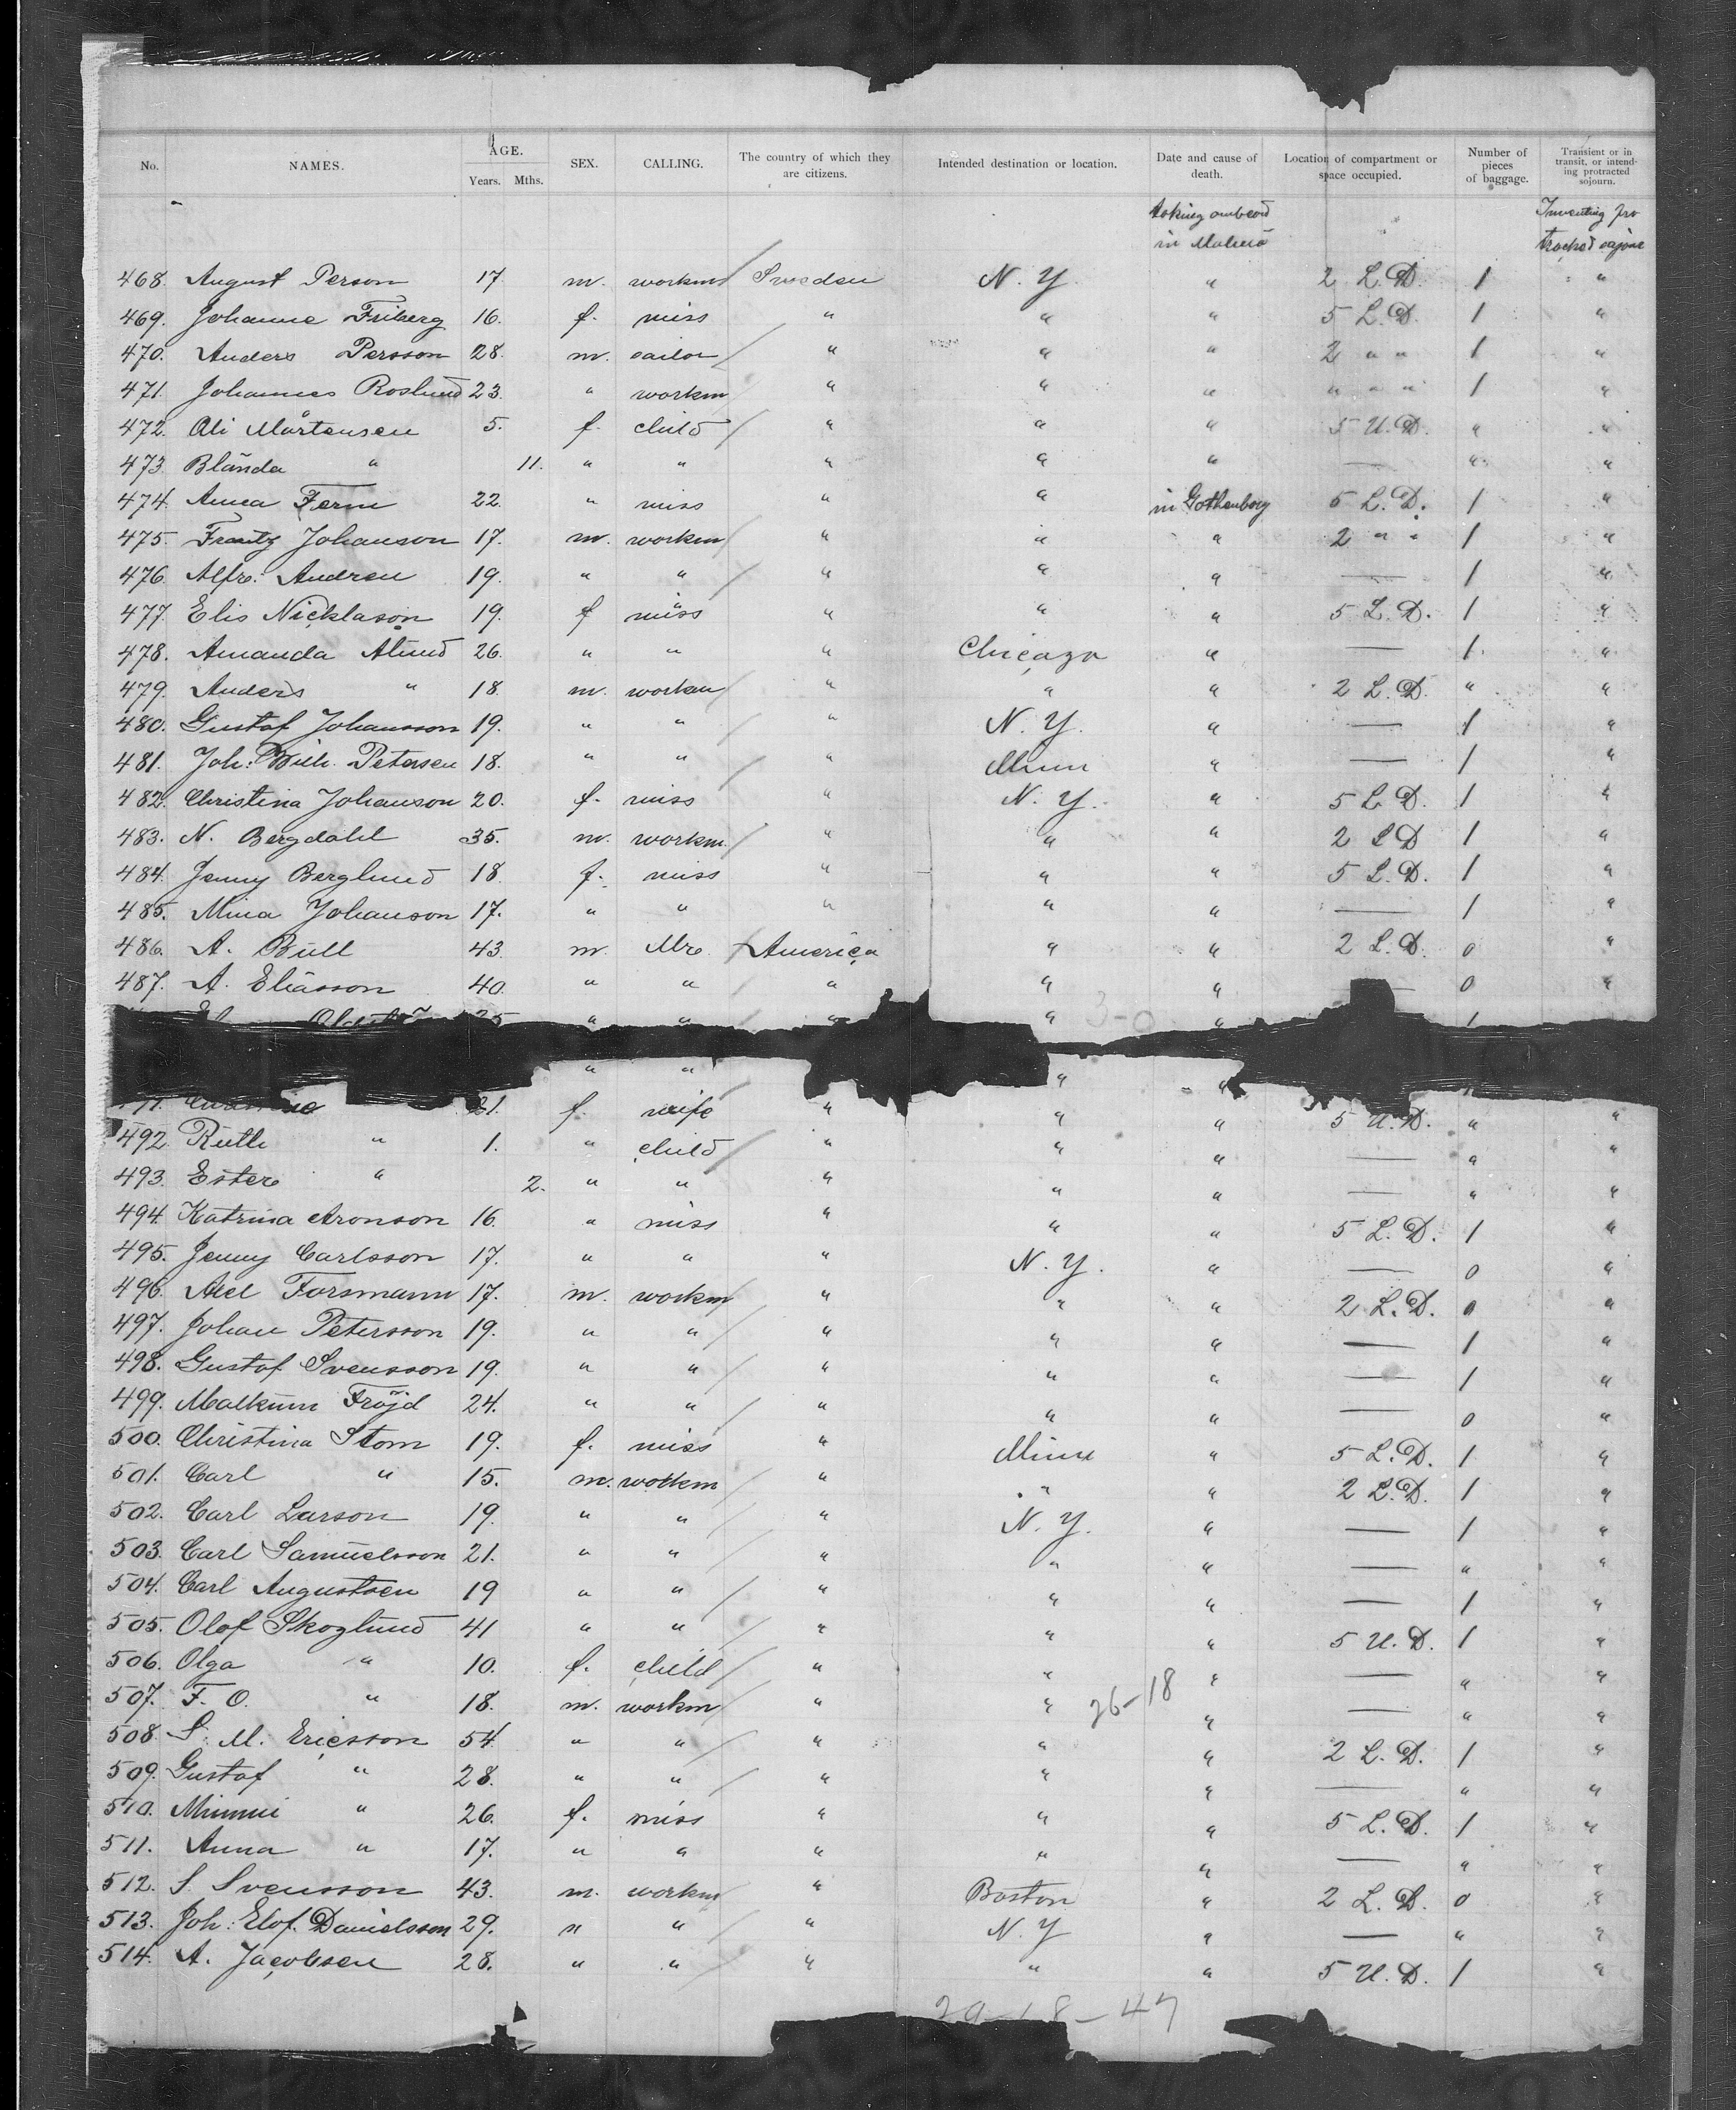 No. NAMES. AGE. Years. Mths. SEX. CALLING. The country of which they are citizens. Intended destination or location. Date and cause of death. Location of compartment or space occupied. Number of pieces of baggage. Transient or in transit, or intending protracted sojourn.
taking onboard
in
468. August Person 17. m. workm Sweden N. Y. " 2 L. D. 1 "
469. Johanne Friberg 16. f. miss " " " 5 L. D. 1 "
470. Anders Persson 28. m. sailor " " " 2 " " 1 "
471. Johannes Roslund 23. " workm " " " " " " 1 "
472. Oli Mårtensen 5. f. child " " " 5 U. D. " "
473. Blanda " 11. " " " " " — " "
474. Anna Ferm 22. " miss " " in Gothenborg 5 L. D. 1 "
475. Frantz Johanson 17. m. workm " " " 2 " " 1 "
476. Alfr. Andreu 19. " " " " " — 1 "
477. Elis Nicklason 19. f miss " " " 5 L. D. 1 "
478. Amanda Alund 26. " " " Chicago " — 1. "
479. Anders " 18. m. workm " " " 2 L. D. " "
480. Gustaf Johansson 19. " " " N. Y. " — 1 "
481. Joh: Wilh. Petersen 18. " " " Minn " — 1 "
482. Christina Johanson 20. f. miss " N. Y. " 5 L. D. 1 "
483. N. Bergdahl 35. m. workm. " " " 2 L D 1 "
484. Jenny Berglund 18. f. miss " " " 5 L. D. 1 "
485. Mina Johanson 17. " " " " " — 1 "
486. A. Bull 43. m. Mr. America " " 2 L. D. 0 "
487. A. Eliasson 40. " " " " " 0 "
25 " " " " 3-0 " 1
" " " "
21. f. wife " " " 5 U. D. " "
492. Ruth " 1. " child " " " — " "
493. Ester " 2. " " " " " — " "
494. Katrina Aronson 16. " miss " " " 5 L. D. 1 "
495. Jenny Carlsson 17. " " " N. Y. " — 0 "
496. Axel Forsmann 17. m. workm " " " 2 L. D. 0 "
497. Johan Petersson 19. " " " " " — 1 "
498. Gustaf Svensson 19. " " " " " — 1 "
499. Malkum Fröjd 24. " " " " " — 0 "
500. Christina Stom 19. f. miss " Minn " 5 L. D. 1 "
501. Carl " 15. m. workm " " " 2 L. D. 1 "
502. Carl Larson 19. " " " N. Y. " — 1 "
503. Carl Samuelsson 21. " " " " " — " "
504. Carl Augustsen 19 " " " " " — 1 "
505. Olof Skoglund 41 " " " " " 5 U. D. 1 "
506. Olga " 10. f. child " " " — " "
507. F. O. " 18. m. workm " " 26-18 " — " "
508. S. M. Ericsson 54. " " " " " 2 L. D. 1 "
509. Gustaf " 28. " " " " " — " "
510. Minnui " 26. f. miss " " " 5 L. D. 1 "
511. Anna " 17. " " " " " — " "
512. S. Svensson 43. m. workm " Boston " 2 L. D. 0 "
513. Joh: Elof. Danielsson 29. " " " N. Y " — " "
514. A. Jacobsen 28. " " " " " 5 U. D. 1 "